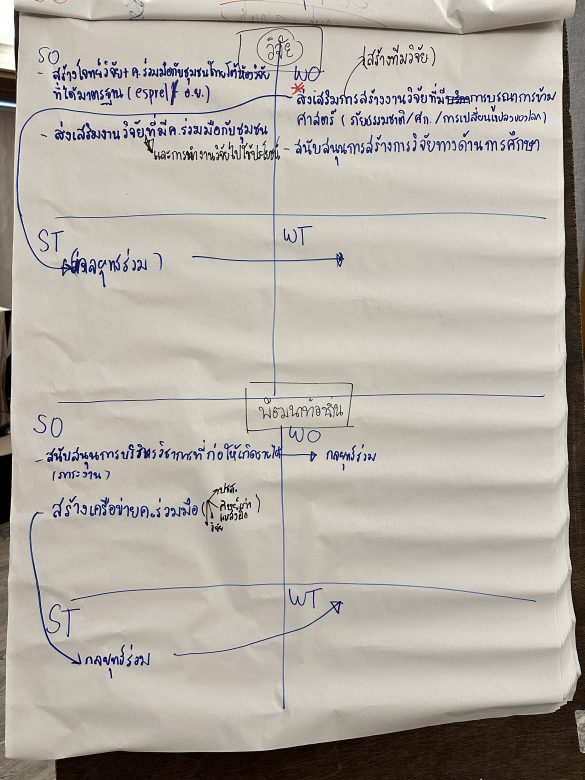 วิจัย
SO
- สร้างโจทย์วิจัย + ค.ร่วมมือกับชุมชนโดยใช้
ที่ได้มาตรฐาน (esprel / อ.ย.)
- ส่งเสริมงานวิจัยที่มีค.ร่วมมือกับชุมชน
และการนำงานวิจัยไปใช้ประโยชน์
WO
(สร้างทีมวิจัย)
- ส่งเสริมการสร้างงานวิจัยที่มีการบูรณาการข้าม
ศาสตร์ (ภัยธรรมชาติ/ศก./การเปลี่ยนแปลงของโลก)
- สนับสนุนการสร้างการวิจัยทางด้านการศึกษา
ST
(กลยุทธ์ร่วม)
WT
พัฒนาท้องถิ่น
SO
- สนับสนุนการบริการวิชาการที่ก่อให้เกิดรายได้
(ภาระงาน)
- สร้างเครือข่ายค.ร่วมมือ
ศิษย์เก่า
วิจัย
WO
กลยุทธ์ร่วม
ST
กลยุทธ์ร่วม
WT